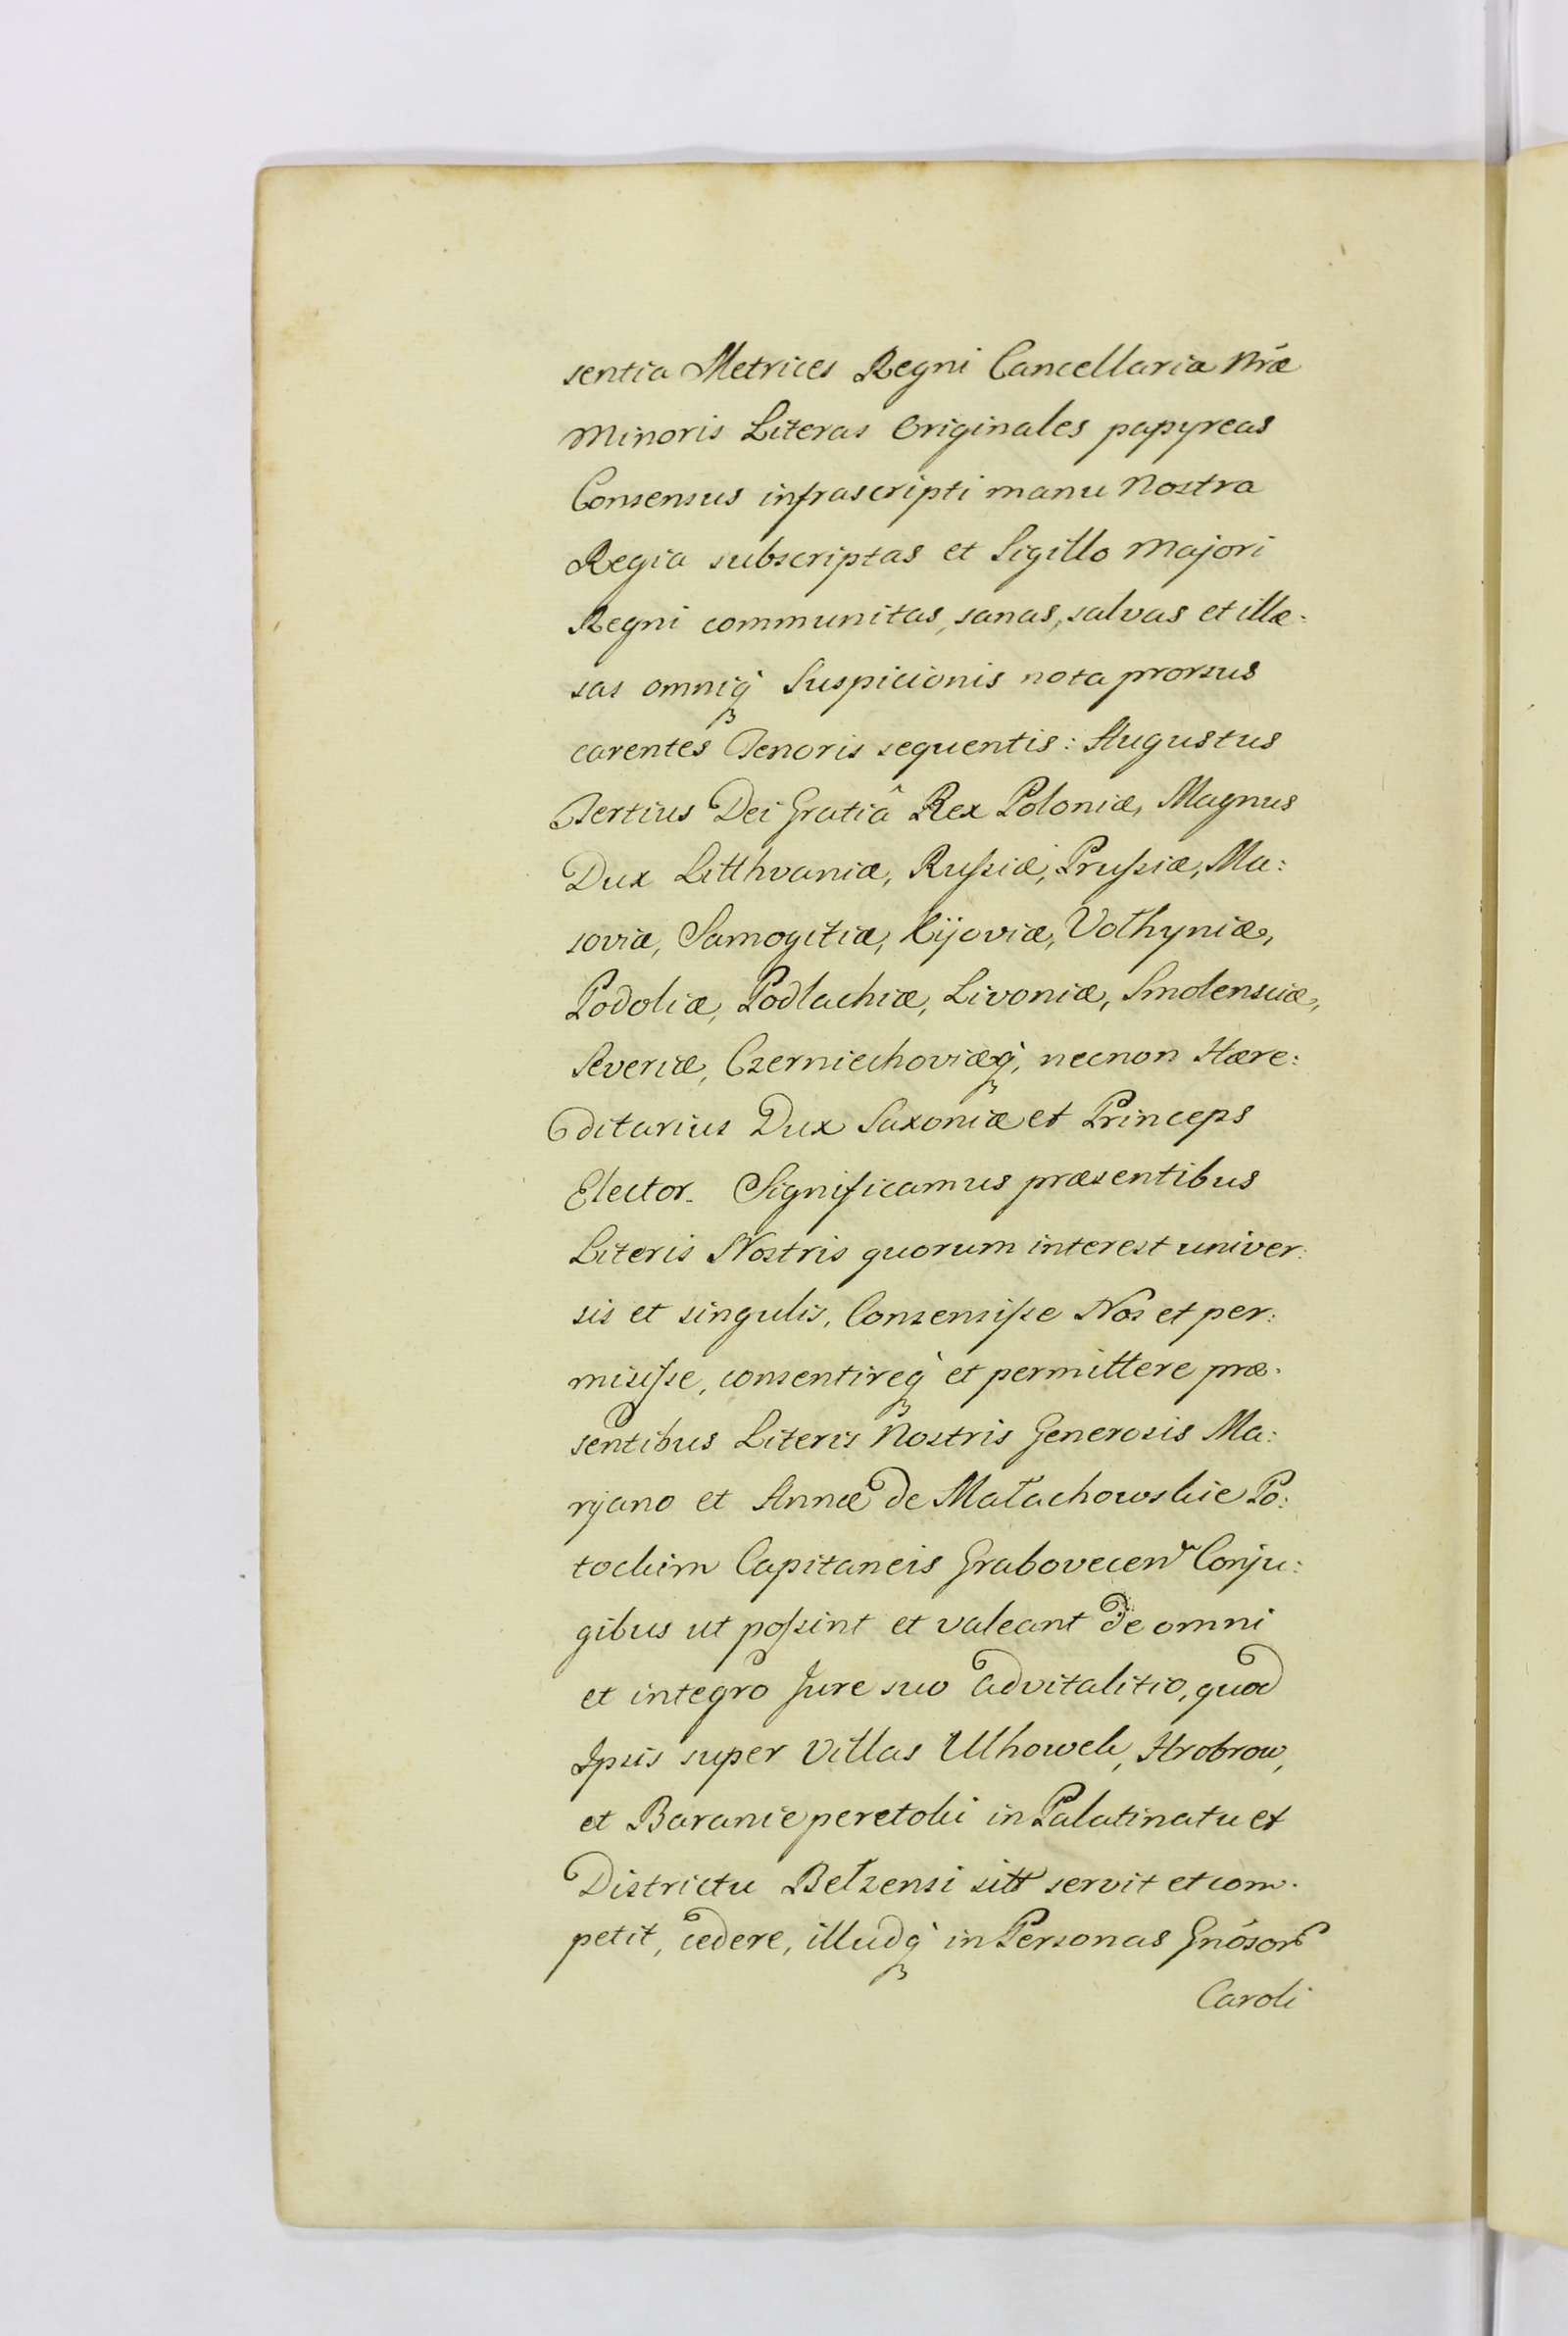 sentia Metrices Regni Cancellariæ Nræ
Minoris Literas Originales papyreas
Consensus infrascripti manu Nostra
Regia subscriptas et Sigillo Majori
Regni communitas, sanas, salvas et illæ:
sas omniq̀ Suspicionis nota prorsus
carentes Tenoris sequentis: Augustus
Tertius Dei Gratiâ Rex Poloniæ, Magnus
Dux Litthvaniæ, Rußiæ, Prußiæ, Ma:
soviæ, Samogitiæ, Kijoviæ, Volhyniæ,
Podoliæ, Podlachiæ, Livoniæ, Smolensciæ,
Severiæ, Czerniechoviæq̀, necnon Hære:
ditarius Dux Saxoniæ et Princeps
Elector. Significamus præsentibus
Literis Nostris quorum interest univer:
sis et singulis, Consensiße Nos et per:
misiße, consentireq̀ et permittere præ:
sentibus Literis Nostris Generosis Ma:
ryano et Annæ de Małachowskie Po:
tockim Capitaneis Grabovecen Conju:
gibus ut poßint et valeant de omni
et integro Jure suo advitalitio, quod
Ipsis super Villas Ulhowek, Hrobrow,
et Baranie peretoki in Palatinatu et
Districtu Bełzensi sitt servit et com:
petit, cedere, illudq̀ in Personas Gnosor
Caroli